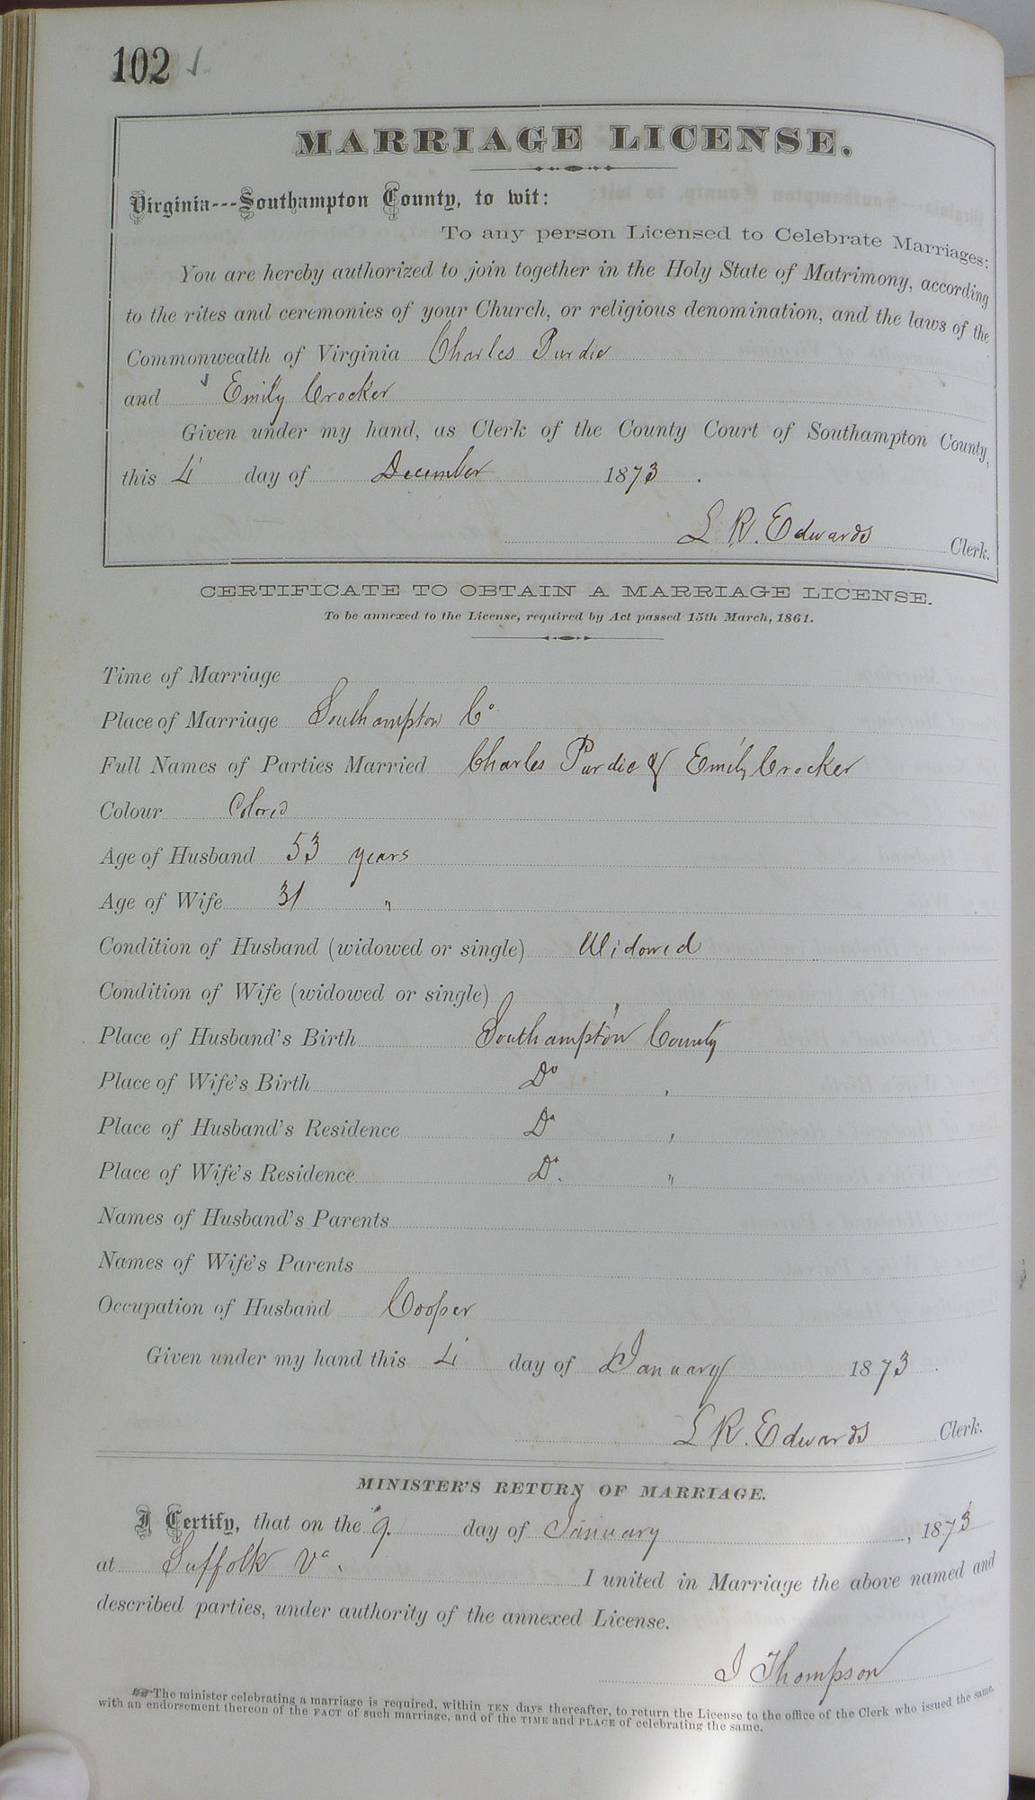 102 ✓
MARRIAGE LICENSE.
Virginia---Southampton County, to wit:
To any person Licensed to Celebrate Marriages:
You are hereby authorized to join together in the Holy State of Matrimony, according
to the rites and ceremonies of your Church, or religious denomination, and the laws of the
Commonwealth of Virginia Charles Purdie
and Emily Crocker
Given under my hand, as Clerk of the County Court of Southampton County,
this 4 day of December 1873.
L R. Edwards Clerk.
CERTIFICATE TO OBTAIN A MARRIAGE LICENSE.
To be annexed to the License, required by Act passed 15th March, 1861.
Time of Marriage
Place of Marriage Southampton Co
Full Names of Parties Married Charles Purdie & Emily Crocker
Colour Colored
Age of Husband 53 years
Age of Wife 31 "
Condition of Husband (widowed or single) Widowed
Condition of Wife (widowed or single) "
Place of Husband's Birth Southampton County
Place of Wife's Birth Do "
Place of Husband's Residence Do "
Place of Wife's Residence Do. "
Names of Husband's Parents
Names of Wife's Parents
Occupation of Husband Cooper
Given under my hand this 4 day of January 1873.
L R. Edwards Clerk.
MINISTER'S RETURN OF MARRIAGE.
I Certify, that on the 9. day of January, 1873
at Suffolk Va. I united in Marriage the above named and
described parties, under authority of the annexed License.
J Thompson
The minister celebrating a marriage is required, within TEN days thereafter, to return the License to the office of the Clerk who issued the same,
with an endorsement thereon of the FACT of such marriage, and of the TIME and PLACE of celebrating the same.